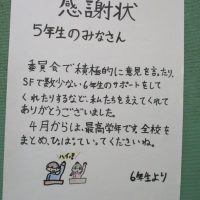 感謝状
5年生のみなさん
委員会で積極的に意見を言ったり、
SFで数少ない6年生のサポートをして
くれたりするなど、私たちを支えてくれて
ありがとうございました。
4月からは、最高学年です。全校を
まとめ、ひっぱっていってくださいね。
ハイッ!
6年生より